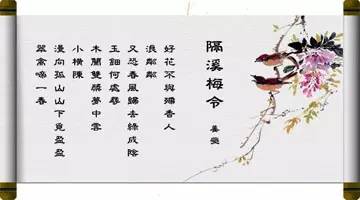 隔溪梅令
姜夔
好花不與殢香人
浪粼粼
又恐春風歸去綠成陰
玉鈿何處尋
木蘭雙槳夢中雲
小橫陳
漫向孤山山下覓盈盈
翠禽啼一春